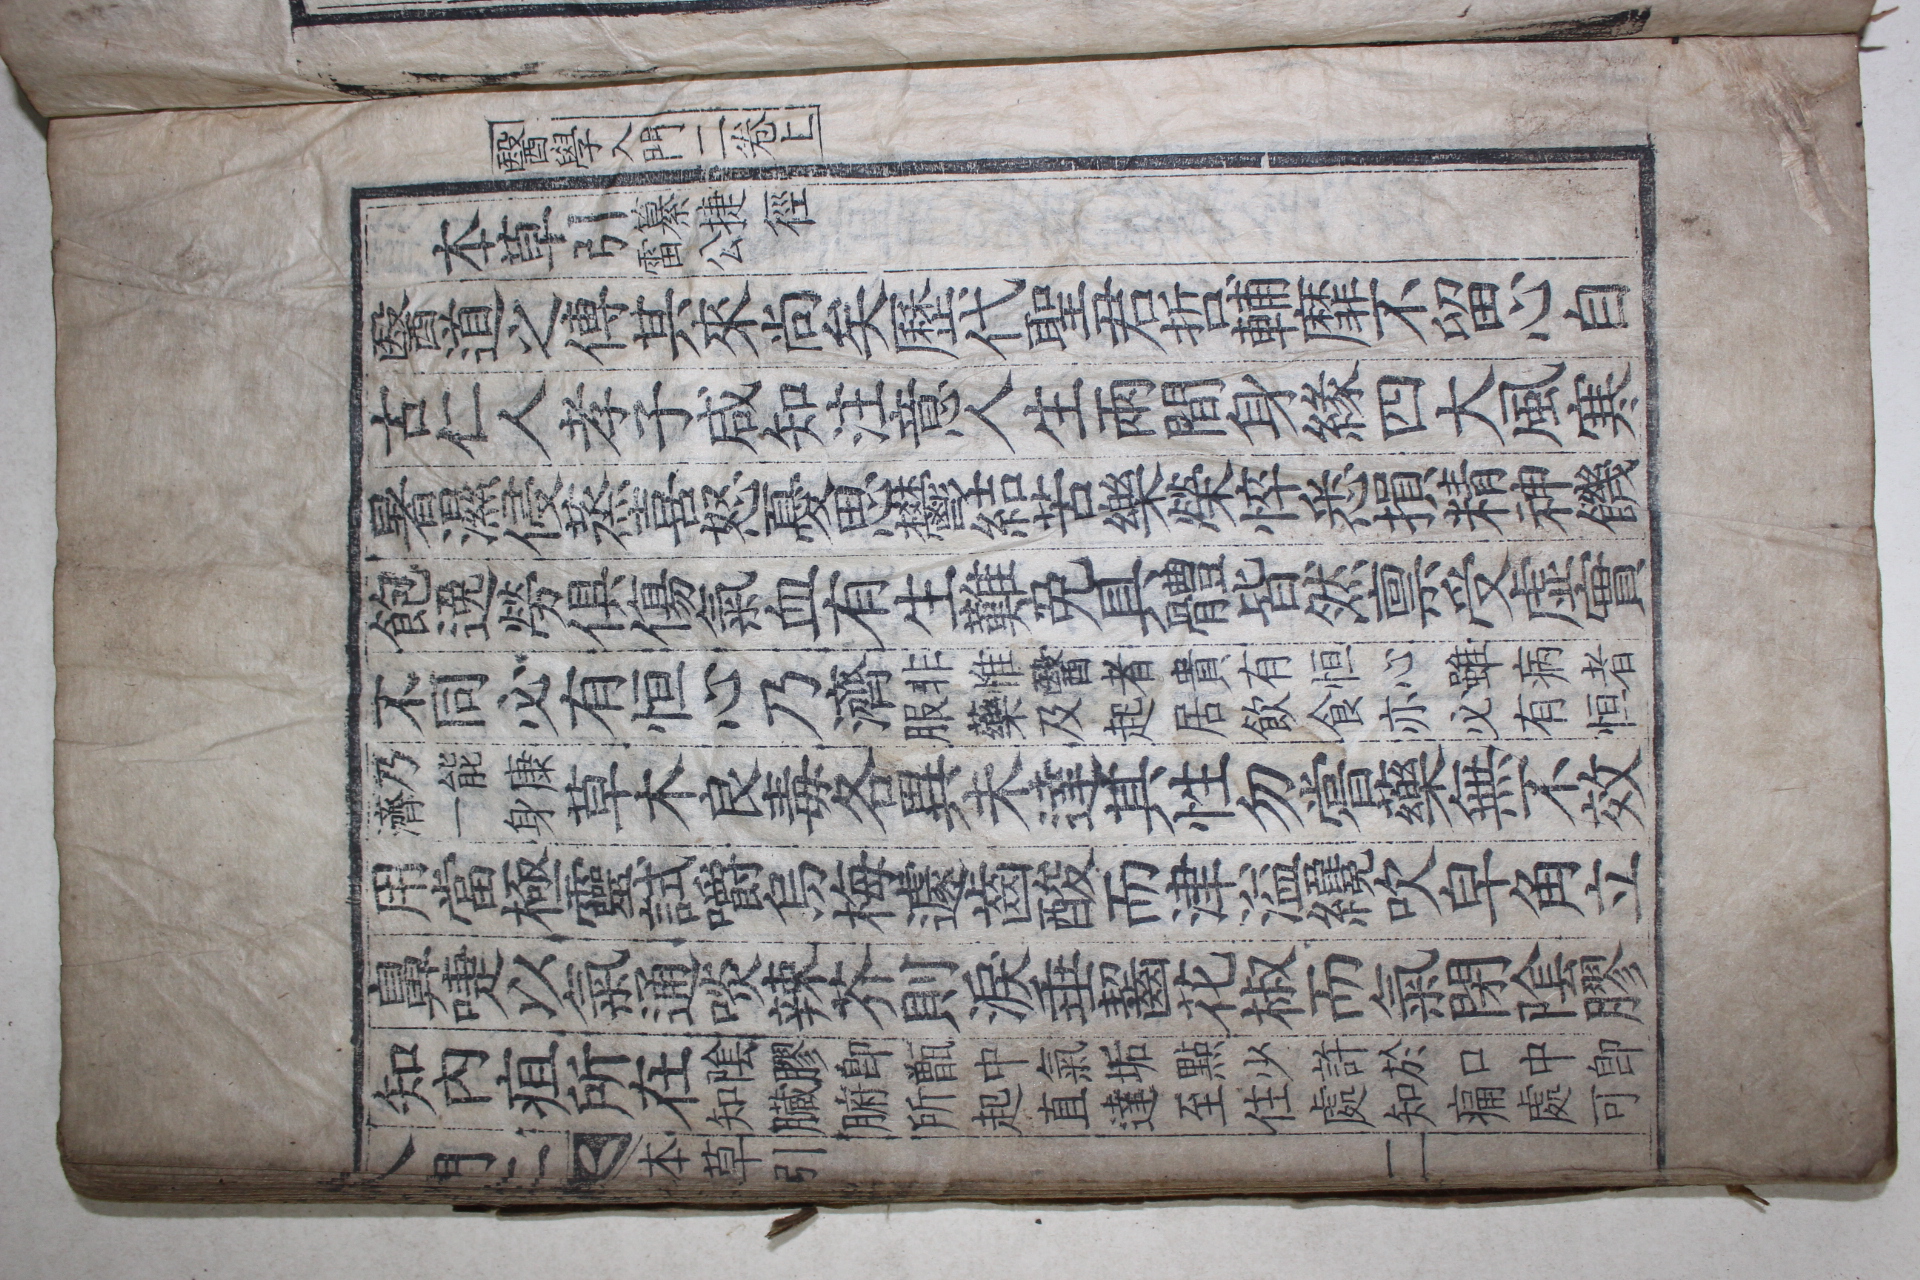 醫學入門二卷上
本草引纂捷徑雷公
醫道之傳其來尚矣歷代聖君哲輔靡不留心自
古仁人孝子咸知注意人生兩間身緣四大風寒
暑濕侵蒸喜怒憂思鬱結苦樂榮悴悉損精神饑
飽逸勞俱傷氣血有生難免具體皆然禀受虛實
不同必有恒心乃濟非惟醫者貴有恒心雖病者服藥及起居飲食亦必有恒
乃能康濟一身草木良毒各異未達其性勿嘗藥無不效
用當極靈試嚼烏梅遽齒酸而津溢纔吹皁角立
鼻嚏以氣通啖辣芥則淚垂齧花椒而氣閉陰膠
知內疽所在陰膠卽甑中氣垢點少許於口中卽知臟腑所起直達至住處知痛處可
入門二 本草引 二